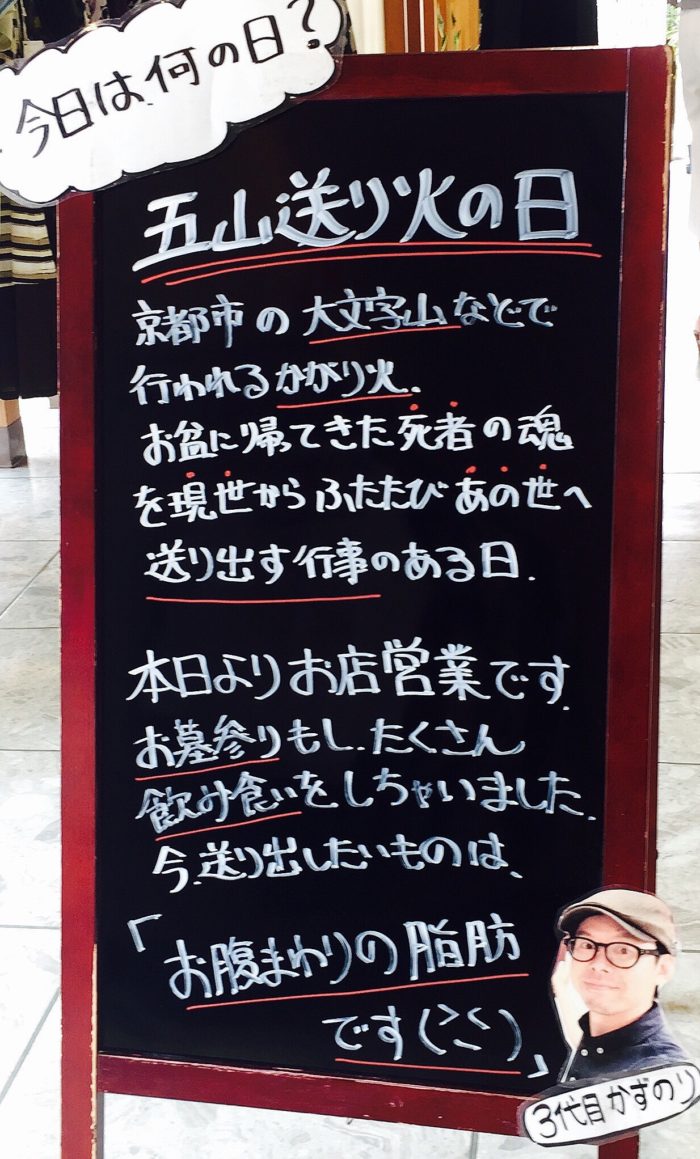 今日は何の日?
五山送り火の日
京都市の大文字山などで
行われるかがり火.
お盆に帰ってきた死者の魂
を現世からふたたびあの世へ
送り出す行事のある日.
本日よりお店営業です.
お墓参りもし.たくさん
飲み食いをしちゃいました.
今.送り出したいものは、
「お腹まわりの脂肪
です(>̀く)」
3代目かずのり